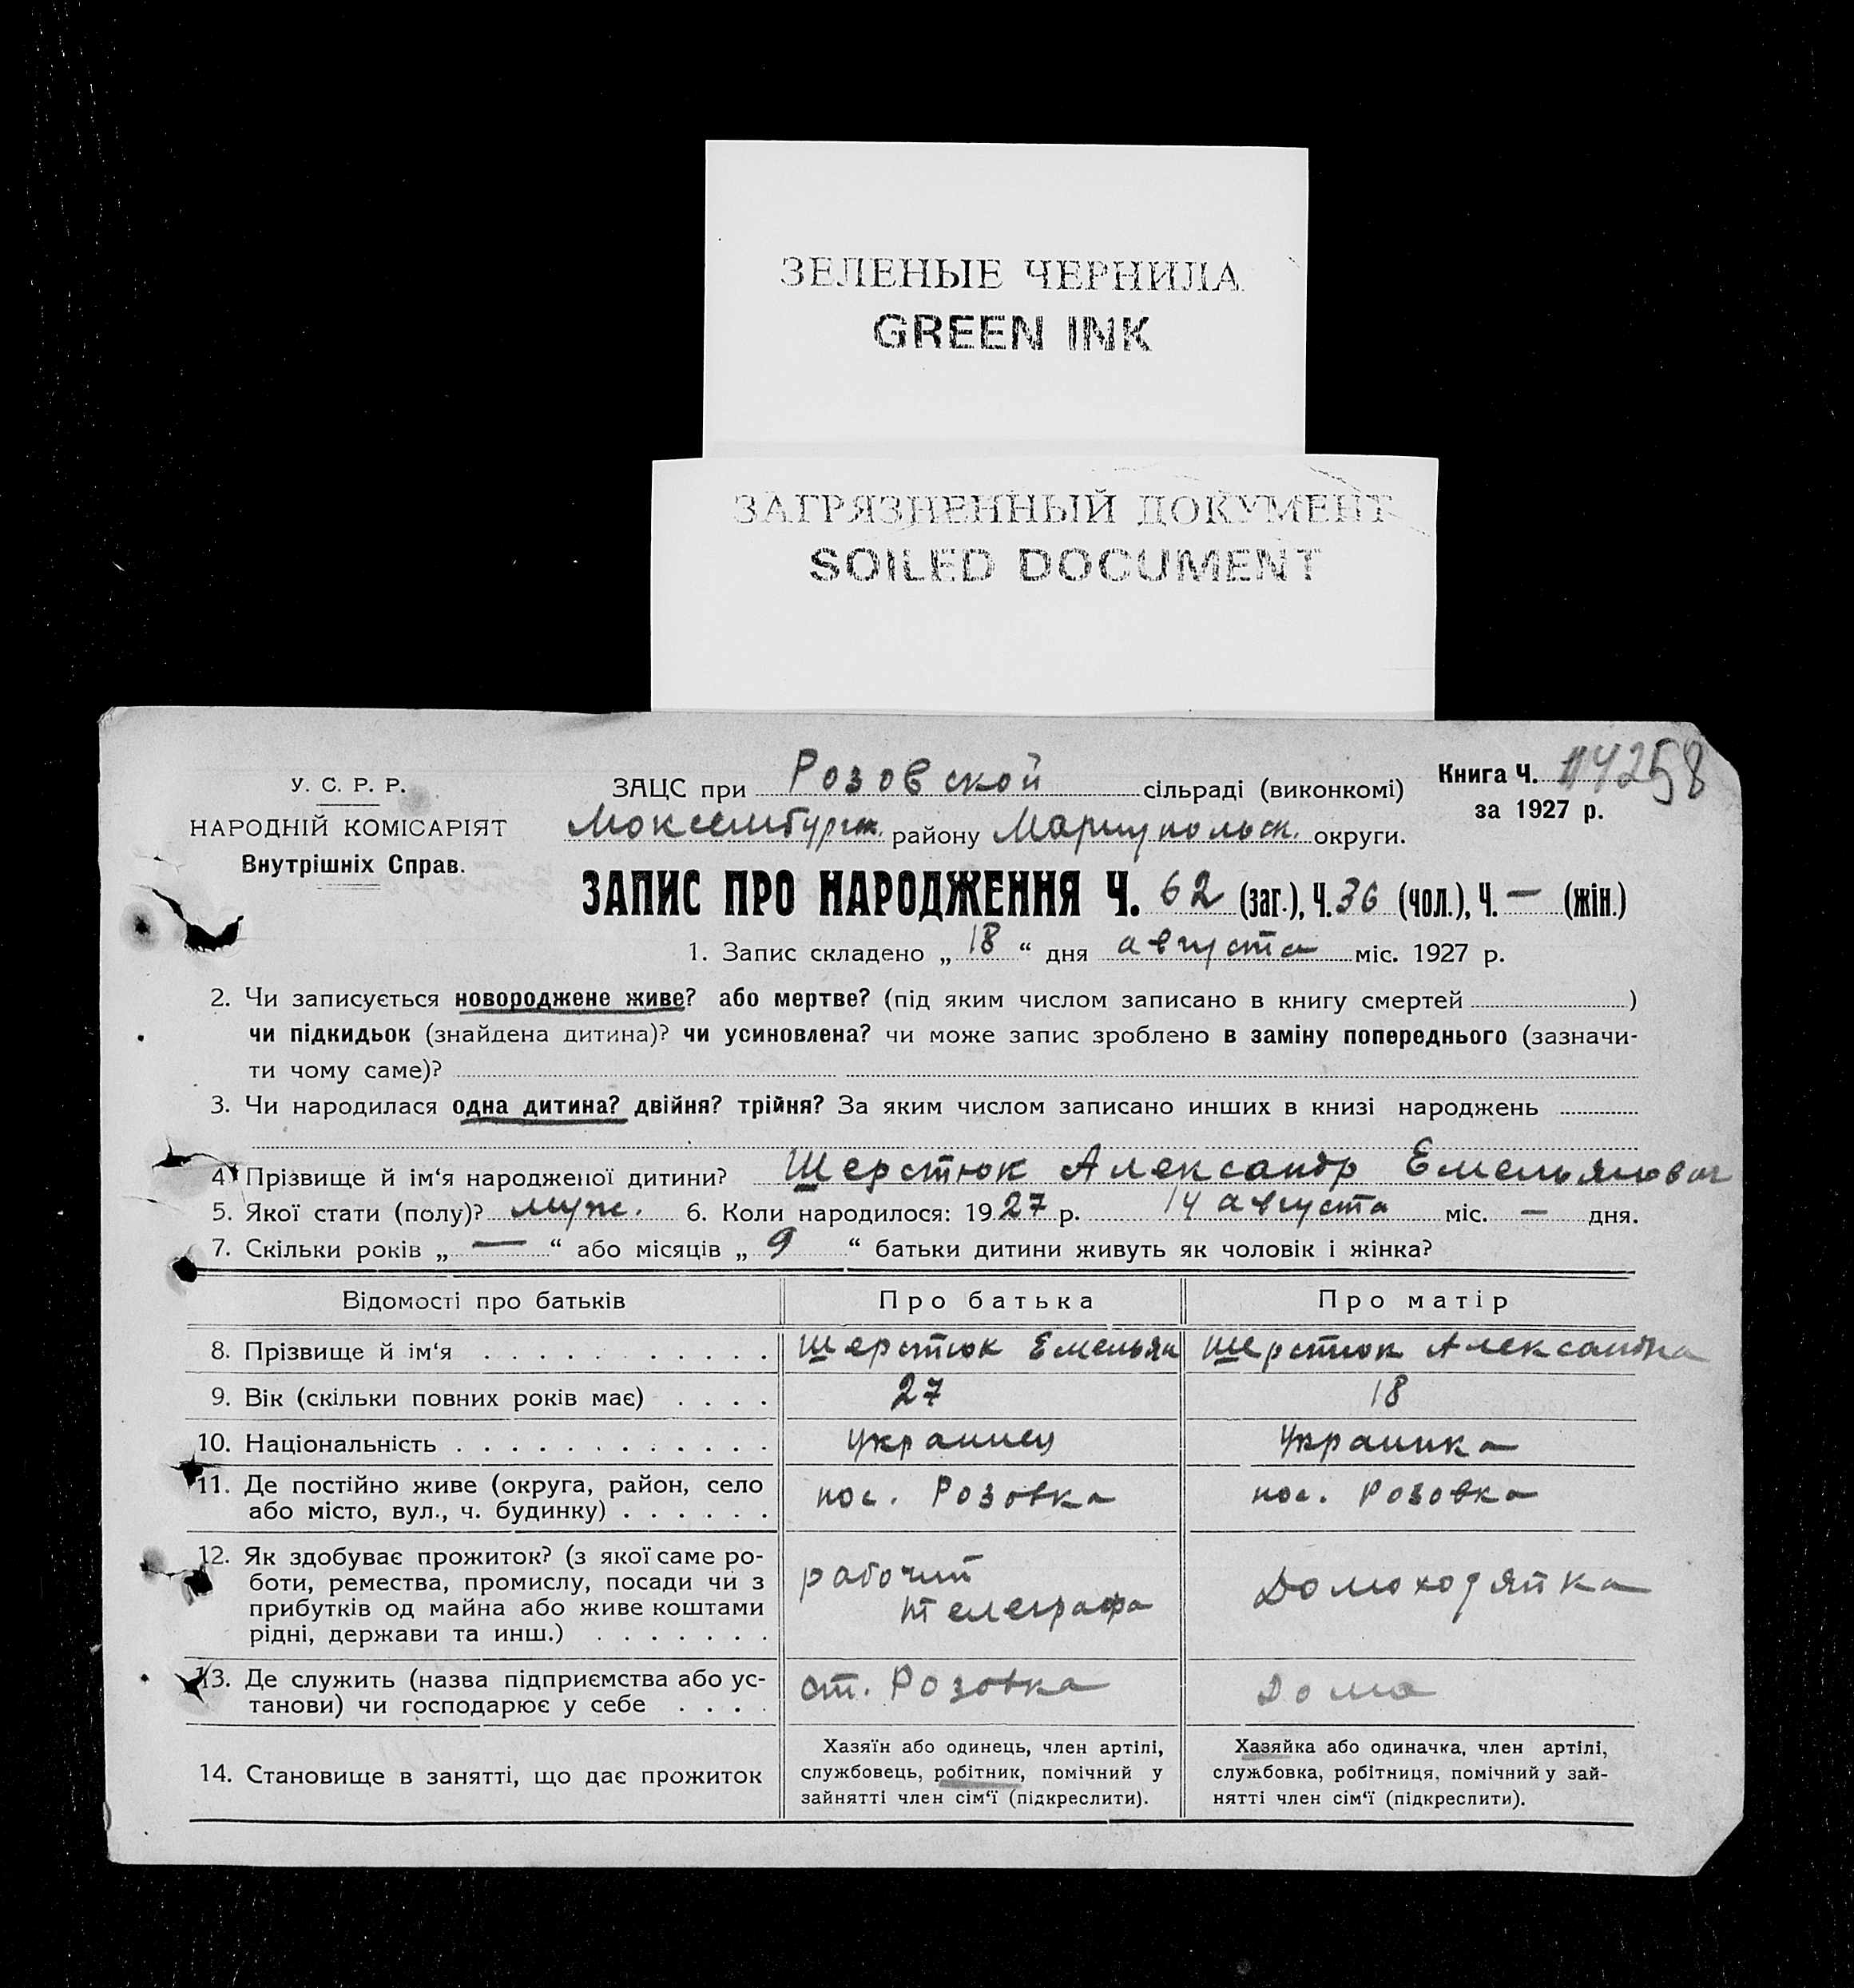 ЗЕЛЕНЫЕ ЧЕРНИЛА
GREEN INK
ЗАГРЯЗНЕННЫЙ ДОКУМЕНТ
SOILED DOCUMENT
У. С. Р. Р.
НАРОДНІЙ КОМІСАРІЯТ
Внутрішніх Справ.
ЗАЦС при Розовской сільраді (виконкомі)
району Мариупольск. округи.
Книга Ч.
за 1927 р.
ЗАПИС ПРО НАРОДЖЕННЯ Ч. 62 (заг.), Ч. 36 (чол.), Ч. — (жін.)
1. Запис складено „ 18 “ дня августа міс. 1927 р.
2. Чи записується новороджене живе? або мертве? (під яким числом записано в книгу смертей )
чи підкидьок (знайдена дитина)? чи усиновлена? чи може запис зроблено в заміну попереднього (зазначи-
ти чому саме)?
3. Чи народилася одна дитина? двійня? трійня? За яким числом записано инших в книзі народжень
4. Прізвище й ім‘я народженої дитини? Шерстюк Александр Емельянович
5. Якої стати (полу)? муж. 6. Коли народилося: 1927 р. 14 августа міс. — дня.
7. Скільки років „ — “ або місяців „ 9 “ батьки дитини живуть як чоловік і жінка?
Відомості про батьків Про батька Про матір
8. Прізвище й ім‘я Шерстюк Емельян Шерстюк Александра
9. Вік (скільки повних років має) 27 18
10. Національність украинец украинка
11. Де постійно живе (округа, район, село
або місто, вул., ч. будинку)
пос. Розовка
пос. Розовка
12. Як здобуває прожиток? (з якої саме ро-
боти, ремества, промислу, посади чи з
прибутків од майна або живе коштами
рідні, держави та инш.)
рабочий
телеграфа
Домохозяйка
13. Де служить (назва підприємства або ус-
танови) чи господарює у себе
ст. Розовка
Дома
14. Становище в занятті, що дає прожиток
Хазяїн або одинець, член артілі,
службовець, робітник, помічний у
зайнятті член сім‘ї (підкреслити).
Хазяйка або одиначка, член артілі,
службовка, робітниця, помічний у зай-
нятті член сім‘ї (підкреслити).